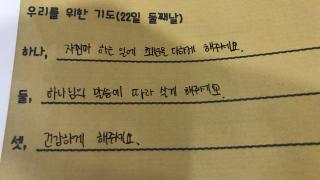 우리를 위한 기도(22일 둘째날)
하나, 자편마 하는 일에 최선을 다하게 해주세요.
둘, 하나님의 말씀에 따라 살게 해주세요.
셋, 건강하게 해주세요.